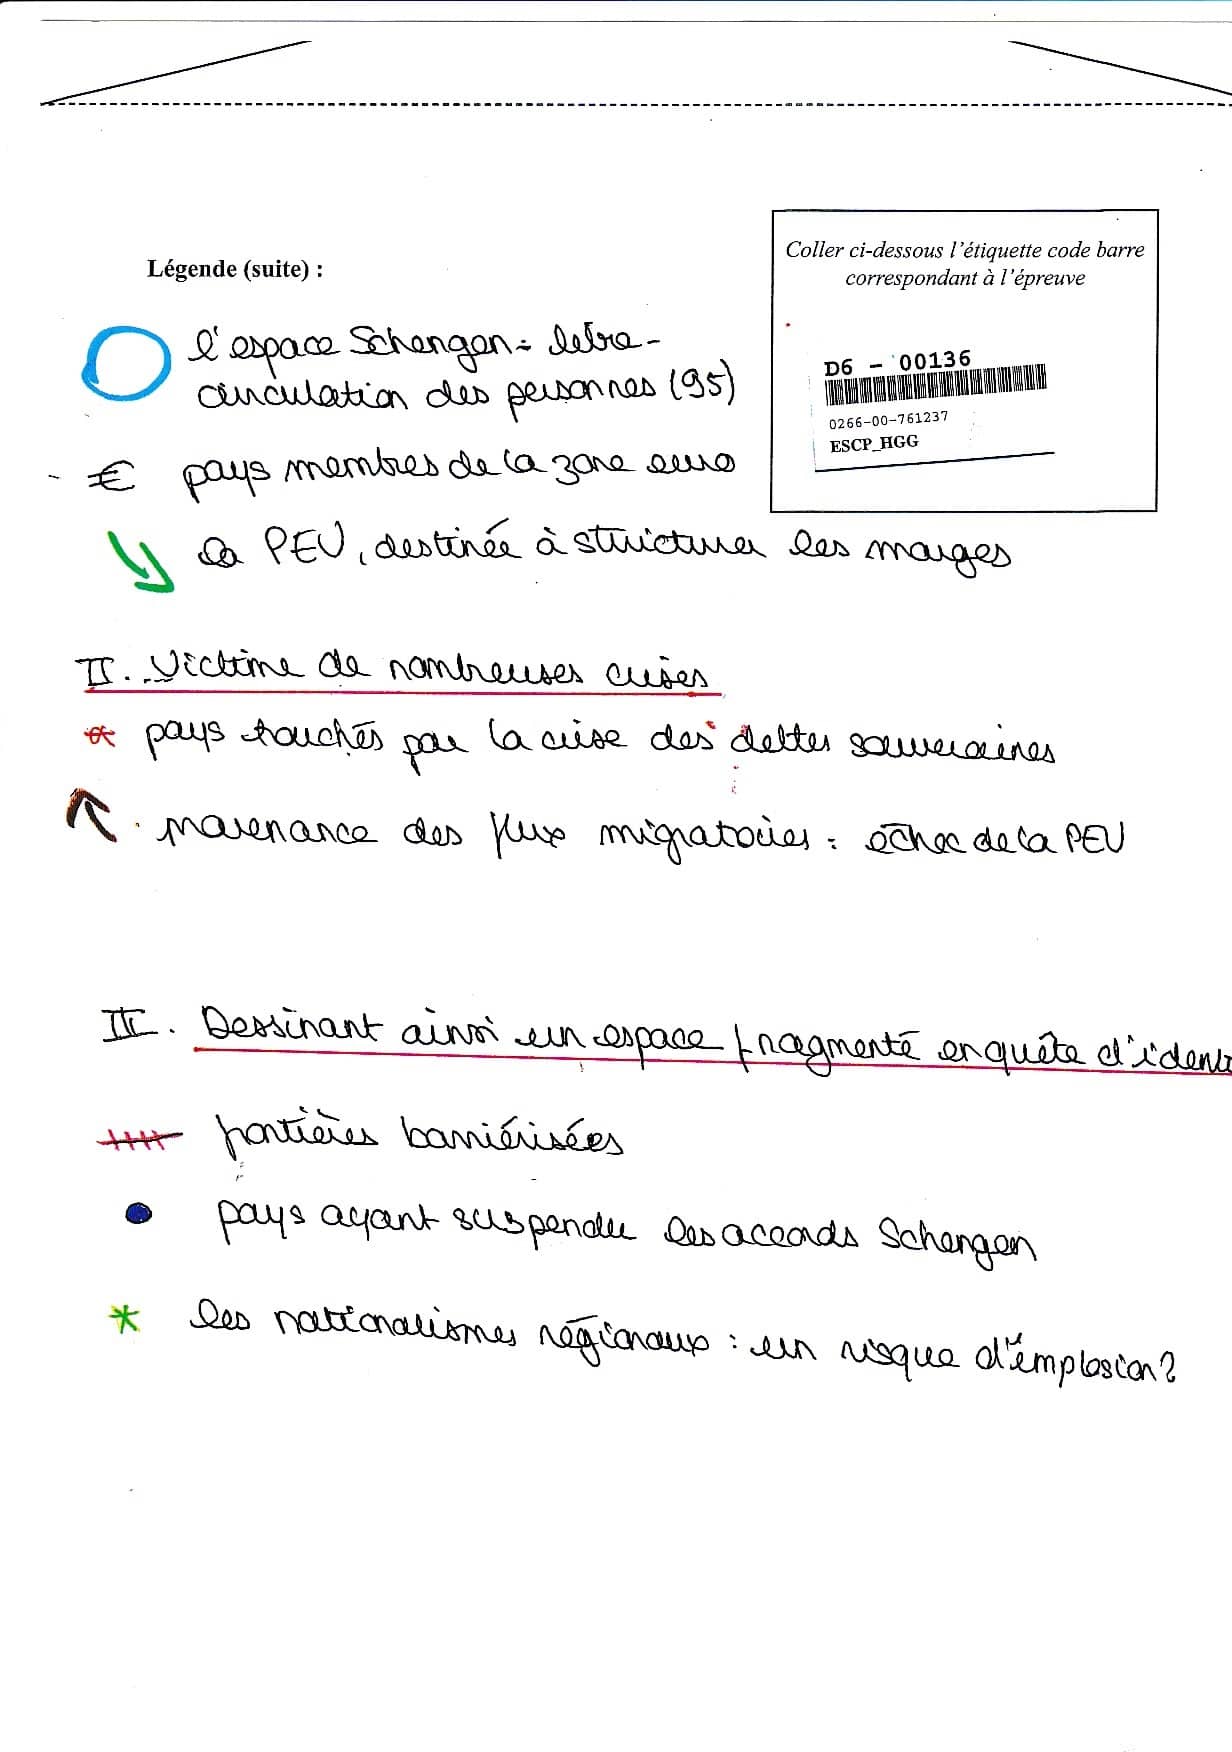 Coller ci-dessous l'étiquette code barre
correspondant à l'épreuve
D6 - 00136
0266-00-761237
ESCP_HGG
Légende (suite) :
l'espace Schengen = libre-
circulation des personnes (95)
€ pays membres de la zone euro
la PEV, destinée à structurer les marges
II. Victime de nombreuses crises
pays touchés par la crise des dettes souveraines
provenance des flux migratoires : échec de la PEV
III. Dessinant ainsi un espace fragmenté en quête d'identi
frontières barriérisées
pays ayant suspendu les accords Schengen
* les nationalismes régionaux : un risque d'implosion?